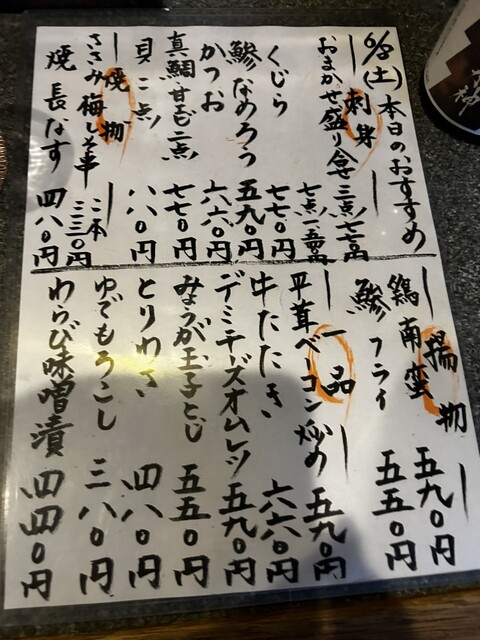 6/8(土)本日のおすすめ
刺身
おまかせ盛り合せ三点七七〇円
七点一五四〇円
くじら 七七〇円
鯵なめろう 五九〇円
かつお 六六〇円
真鯛甘えび二点 七七〇円
貝二点 八八〇円
焼物
ささみ梅しそ串 二本 三三〇円
焼長なす 四八〇円
揚物
鶏南蛮 五九〇円
鯵フライ 五五〇円
一品
平茸ベーコン炒め 五九〇円
牛たたき 六六〇円
デミチーズオムレツ 五九〇円
みょうが玉子とじ 五五〇円
とりわさ 四八〇円
ゆでもろこし 三八〇円
わらび味噌漬 四四〇円